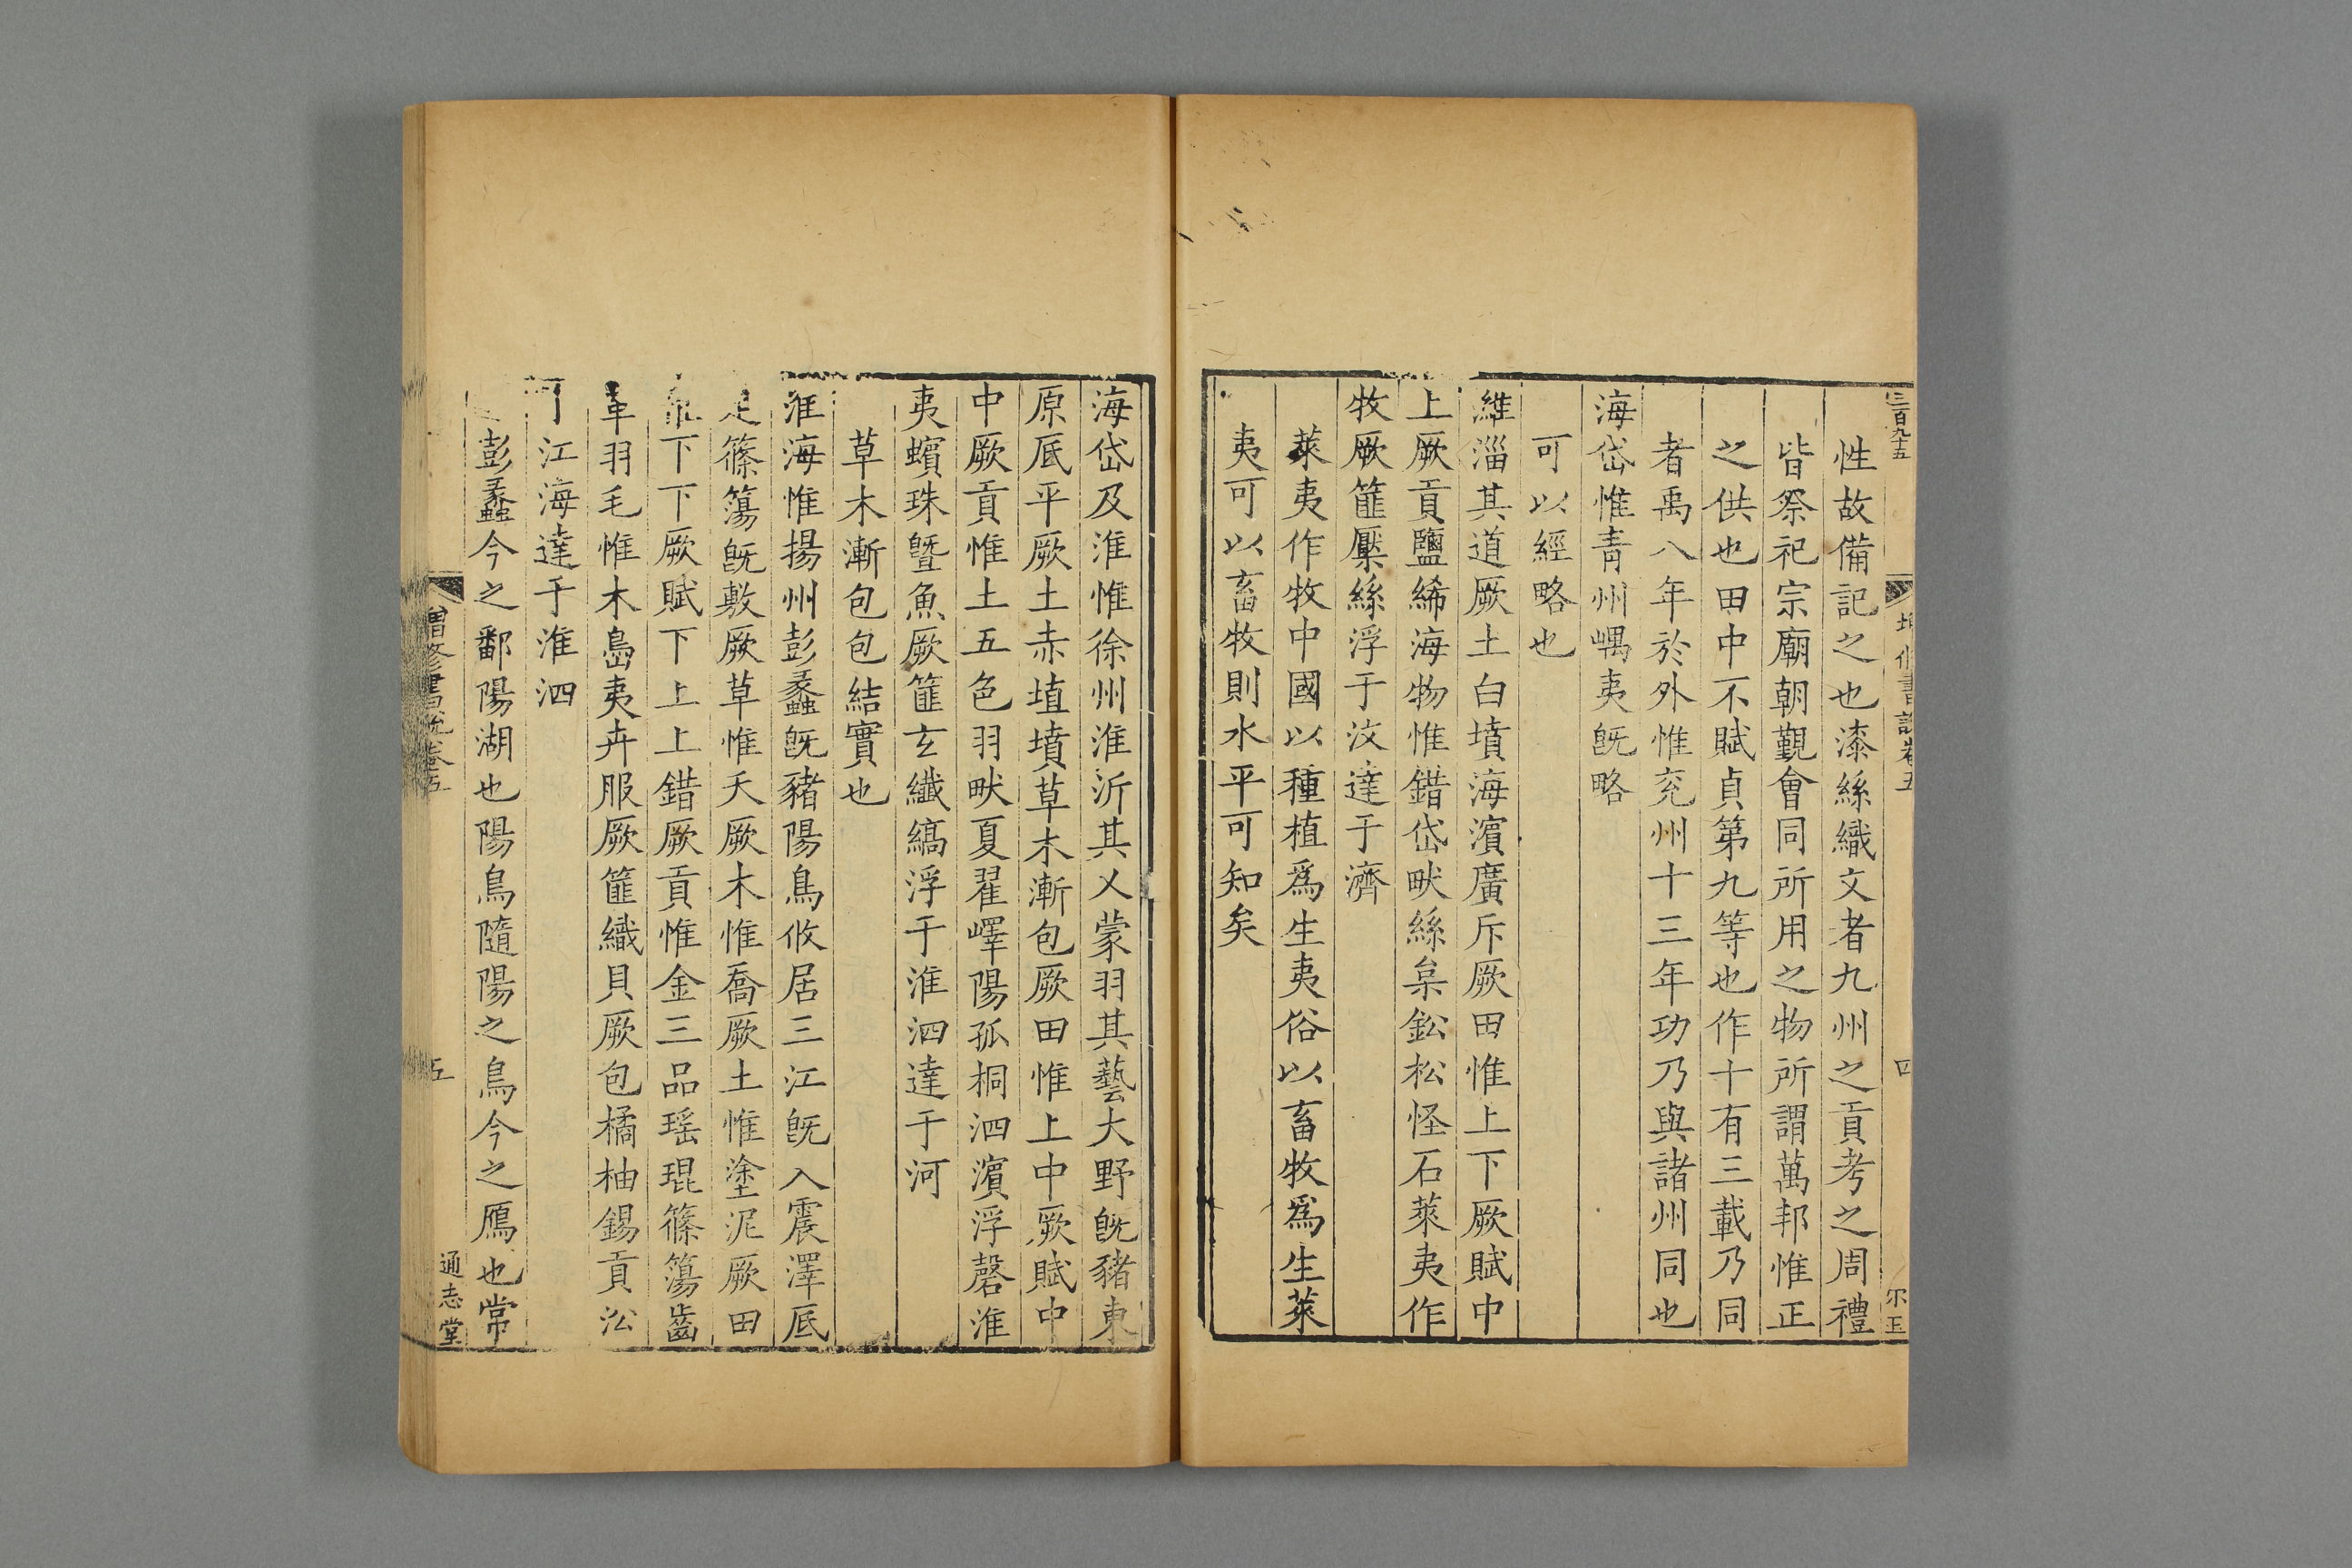 三百九十五
四
尔玉
性故備記之也漆絲織文者九州之貢考之周禮
皆祭祀宗廟朝覲會同所用之物所謂萬邦惟正
之供也田中不賦貞第九等也作十有三載乃同
者禹八年於外惟兖州十三年功乃與諸州同也
海岱惟青州嵎夷旣略
可以經略也
濰淄其道厥土白墳海濵廣斥厥田惟上下厥賦中
上厥貢鹽絺海物惟錯岱畎絲枲鈆松怪石萊夷作
牧厥篚檿絲浮于汶達于濟
萊夷作牧中國以種植爲生夷俗以畜牧爲生萊
夷可以畜牧則水平可知矣
海岱及淮惟徐州淮沂其乂蒙羽其藝大野旣豬東
原厎平厥土赤埴墳草木漸包厥田惟上中厥賦中
中厥貢惟土五色羽畎夏翟嶧陽孤桐泗濵浮磬淮
夷蠙珠曁魚厥篚玄纖縞浮于淮泗達于河
草木漸包包結實也
淮海惟揚州彭蠡旣豬陽鳥攸居三江旣入震澤厎
定篠簜旣敷厥草惟夭厥木惟喬厥土惟塗泥厥田
下下厥賦下上上錯厥貢惟金三品瑤琨篠簜齒
革羽毛惟木島夷卉服厥篚織貝厥包橘柚錫貢㳂
江海達于淮泗
彭蠡今之鄱陽湖也陽鳥隨陽之鳥今之鴈也常
增修書說卷五
五
通志堂